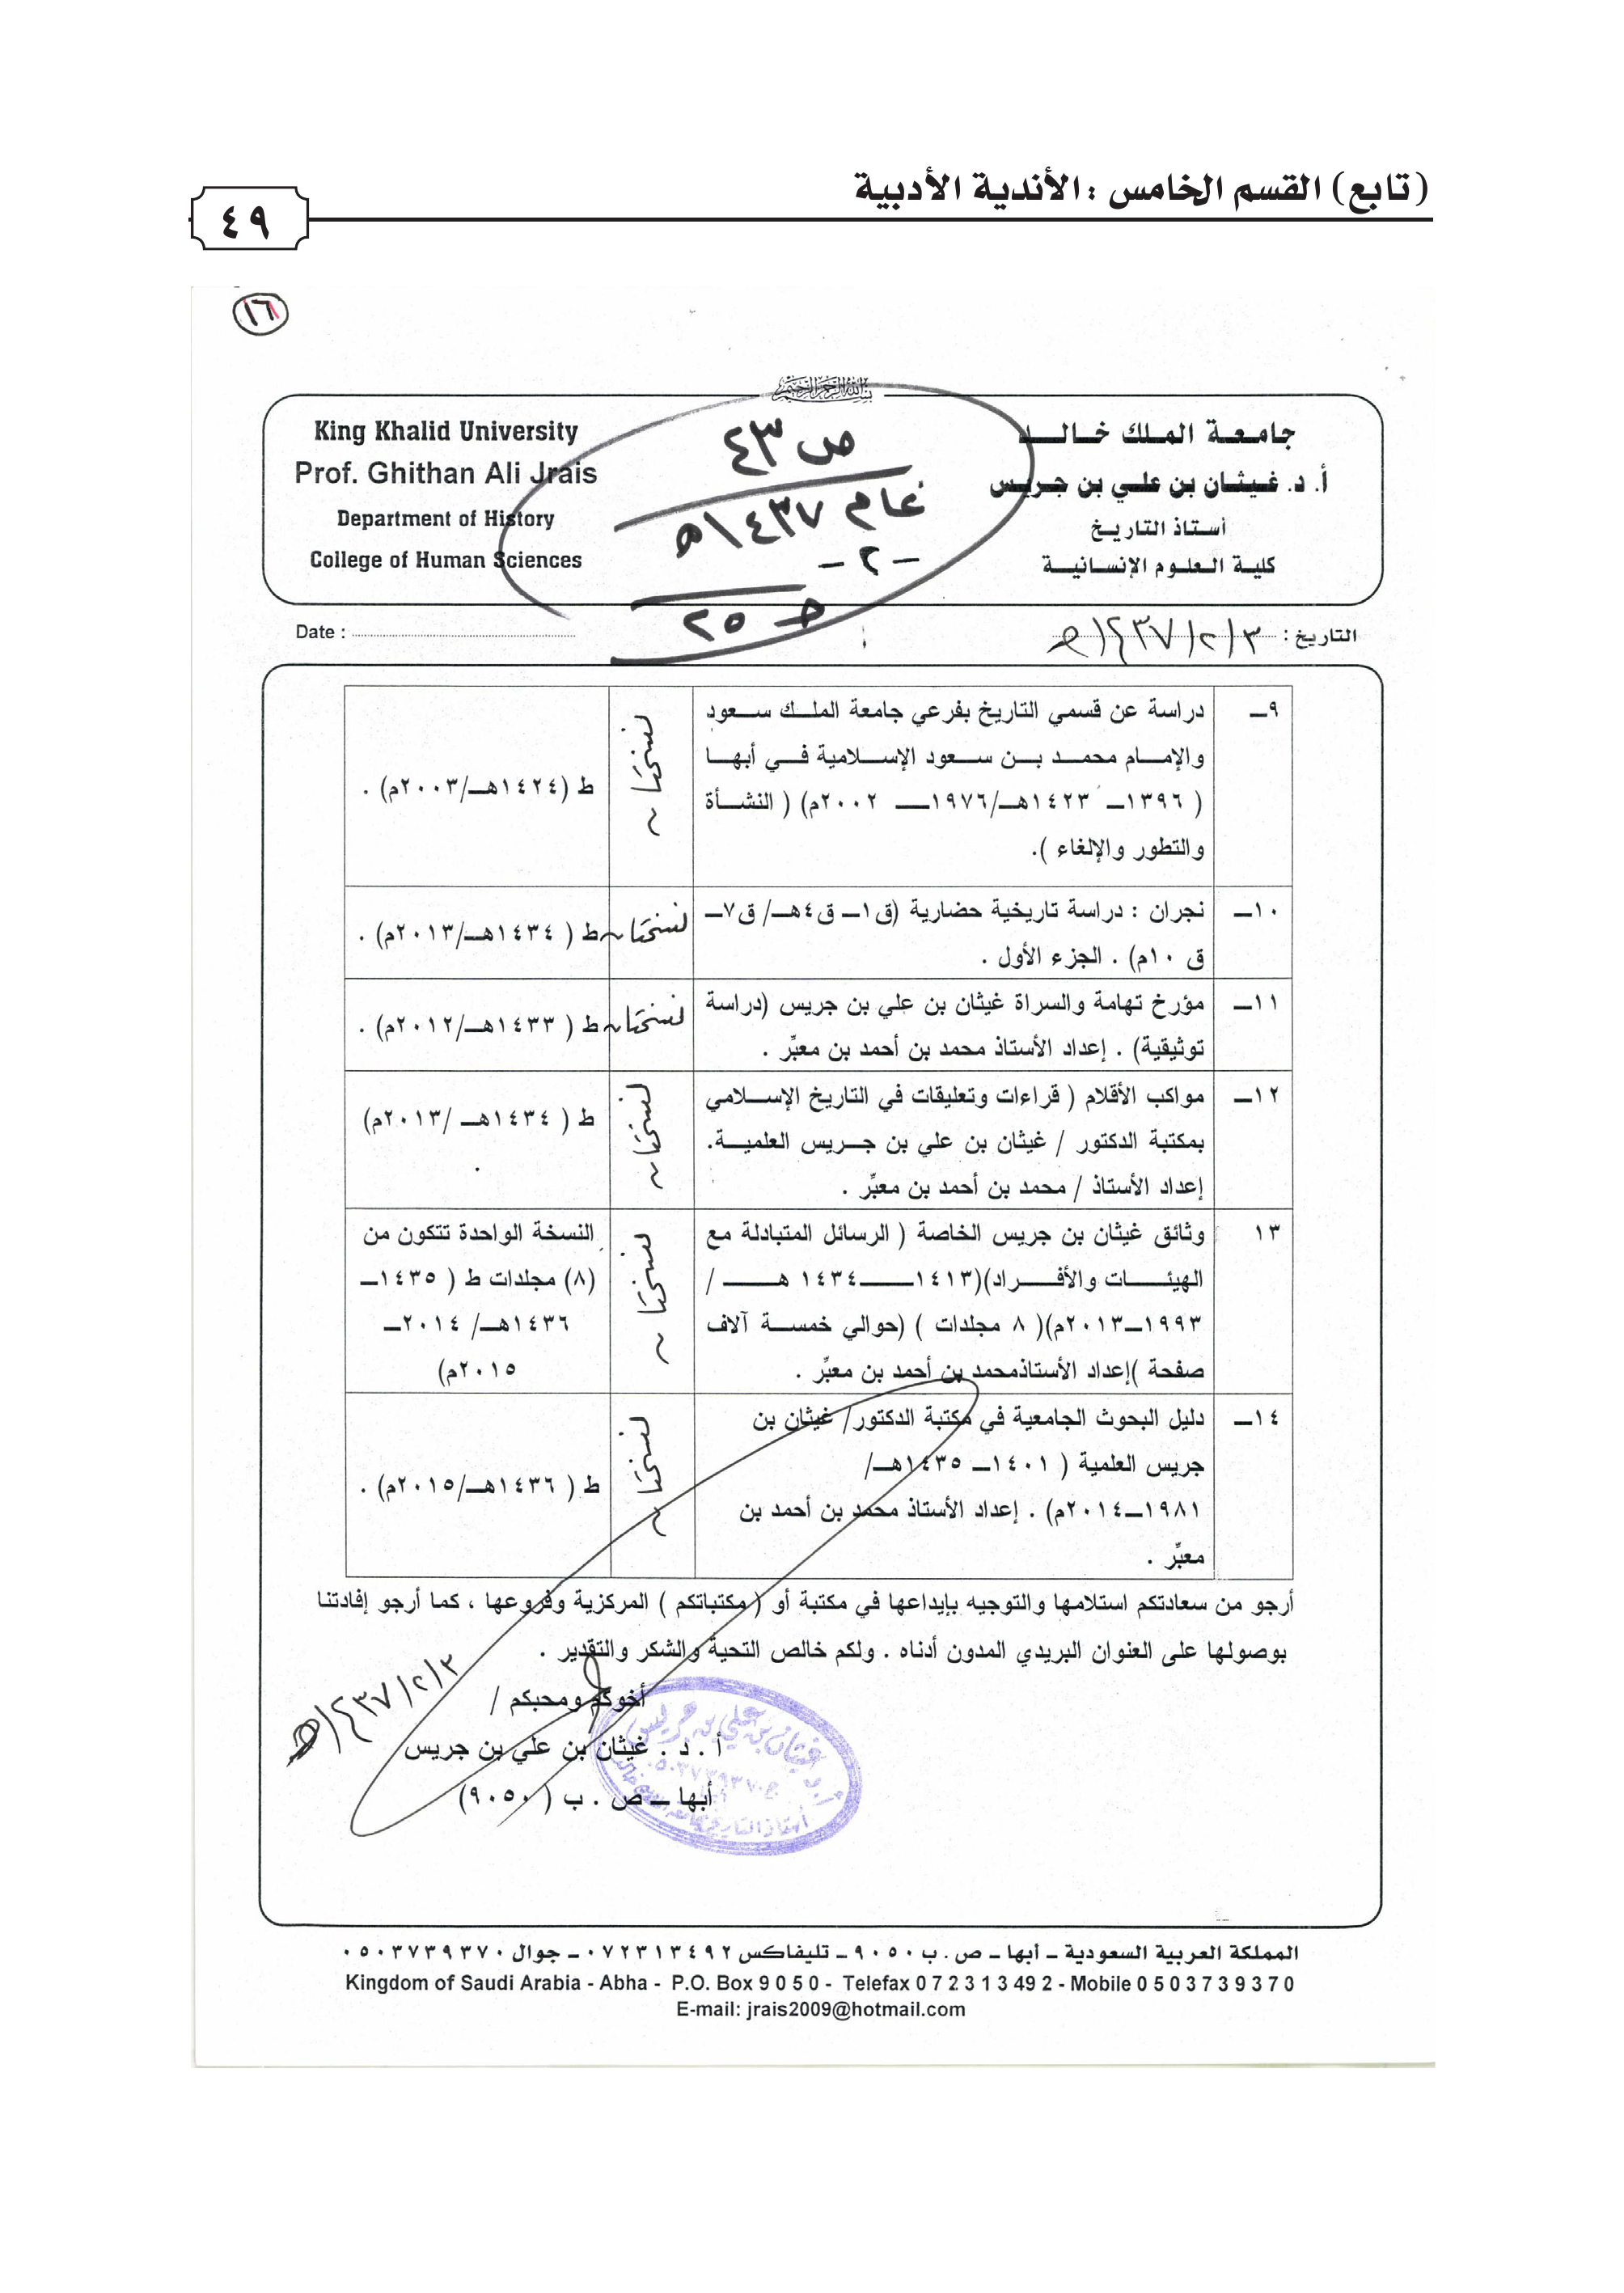 (تابع) القسم الخامس : الأندية الأدبية
٤٩
١٦
جامعة الملك خالد
أ. د. غيثان بن علي بن جريس
أستاذ التاريخ
كلية العلوم الإنسانية
King Khalid University
Prof. Ghithan Ali Jrais
Department of History
College of Human Sciences
ص ٤٣
عام ١٤٣٧هـ
-٢-
٢٥
التاريخ : ١٤٣٧/٢/٣هـ
Date :
٩ــ دراسة عن قسمي التاريخ بفرعي جامعة الملك سعود
والإمام محمد بن سعود الإسلامية في أبها
( ١٣٩٦ــ ١٤٢٣هـ/١٩٧٦ــ ٢٠٠٢م) ( النشأة
والتطور والإلغاء ).
نسختان
ط (١٤٢٤هـ/٢٠٠٣م) .
١٠ــ نجران : دراسة تاريخية حضارية (ق١ــ ق٤هـ/ ق٧ــ
ق ١٠م) . الجزء الأول .
نسختان
ط ( ١٤٣٤هـ/٢٠١٣م) .
١١ــ مؤرخ تهامة والسراة غيثان بن علي بن جريس (دراسة
توثيقية) . إعداد الأستاذ محمد بن أحمد بن معبِّر .
نسختان
ط ( ١٤٣٣هـ/٢٠١٢م) .
١٢ــ مواكب الأقلام ( قراءات وتعليقات في التاريخ الإسلامي
بمكتبة الدكتور / غيثان بن علي بن جريس العلمية.
إعداد الأستاذ / محمد بن أحمد بن معبِّر .
نسختان
ط ( ١٤٣٤هـ /٢٠١٣م)
.
١٣ وثائق غيثان بن جريس الخاصة ( الرسائل المتبادلة مع
الهيئات والأفراد)(١٤١٣ــ١٤٣٤ هـ /
١٩٩٣ــ٢٠١٣م)( ٨ مجلدات ) (حوالي خمسة آلاف
صفحة )إعداد الأستاذمحمد بن أحمد بن معبِّر .
نسختان
النسخة الواحدة تتكون من
(٨) مجلدات ط ( ١٤٣٥ــ
١٤٣٦هـ/ ٢٠١٤ــ
٢٠١٥م)
١٤ــ دليل البحوث الجامعية في مكتبة الدكتور/ غيثان بن
جريس العلمية ( ١٤٠١ــ ١٤٣٥هـ/
١٩٨١ــ٢٠١٤م) . إعداد الأستاذ محمد بن أحمد بن
معبِّر .
نسختان
ط ( ١٤٣٦هـ/٢٠١٥م) .
أرجو من سعادتكم استلامها والتوجيه بإيداعها في مكتبة أو ( مكتباتكم ) المركزية وفروعها ، كما أرجو إفادتنا
بوصولها على العنوان البريدي المدون أدناه . ولكم خالص التحية والشكر والتقدير .
أخوكم ومحبكم /
أ . د . غيثان بن علي بن جريس
أبها ــ ص . ب ( ٩٠٥٠)
١٤٣٧/٢/٣هـ
أ.د. غيثان بن علي بن جريس
ج. ٠٥٠٣٧٣٩٣٧٠
المملكة العربية السعودية ــ أبها ــ ص . ب ٩٠٥٠ ــ تليفاكس ٠٧٢٣١٣٤٩٢ ــ جوال ٠٥٠٣٧٣٩٣٧٠
Kingdom of Saudi Arabia - Abha - P.O. Box 9 0 5 0 - Telefax 0 7 2 3 1 3 49 2 - Mobile 0 5 0 3 7 3 9 3 7 0
E-mail: jrais2009@hotmail.com